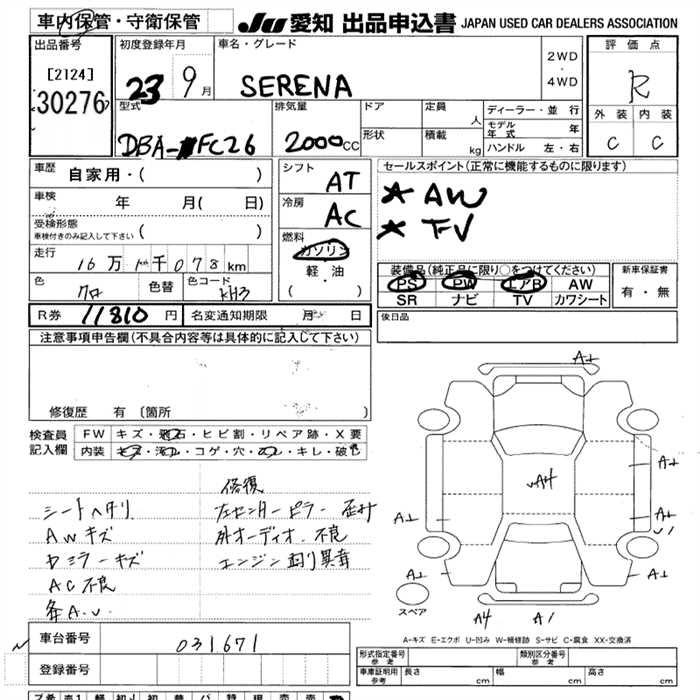 車内保管・守衛保管
JU 愛知 出品申込書 JAPAN USED CAR DEALERS ASSOCIATION
出品番号
[2124]
30276
初度登録年月
23 9月
車名・グレード
SERENA
2WD
・
4WD
評価点
R
外装 内装
C C
型式
DBA-FC26
排気量
2000cc
ドア
形状
定員 人
積載 kg
ディーラー・並行
モデル年式 年
ハンドル 左・右
車歴 自家用・( )
車検 年 月( 日)
受検形態
車検付きのみ記入して下さい ( )
走行 16万 千078km
色 クロ 色替 色コード KH3
シフト AT
冷房 AC
燃料
ガソリン
軽・油
( ・ )
セールスポイント(正常に機能するものに限ります)
★ AW
★ TV
装備品(純正品に限り○をつけてください)
PS PW エアB AW
SR ナビ TV カワシート
新車保証書
有・無
R券 11810 円 名変通知期限 月 日
後日品
注意事項申告欄(不具合内容等は具体的に記入して下さい)
修復歴 有 (箇所 )
検査員記入欄
FW キズ・飛石・ヒビ割・リペア跡・X要
内装 キズ・汚レ・コゲ・穴・スレ・キレ・破レ
シートヘタリ
AWキズ
カミラーキズ
AC不良
各A.U.
修復
左センターピラー歪み
外オーディオ不良
エンジン回り異音
A1
A1
A1
A1
A1
A1
A1
√A4
A4 A1
スペア
A-キズ E-エクボ U-凹み W-補修跡 S-サビ C-腐食 XX-交換済
車台番号 031671
登録番号
形式指定番号
参考
類別区分番号
参考
車庫証明用
参考
長さ cm 幅 cm 高さ cm